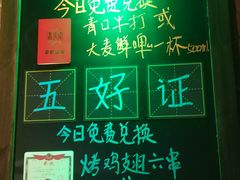 今日免费兑换
青口半打 或
大麦鲜啤一杯500ml
五好证
今日免费兑换
烤鸡翅六串